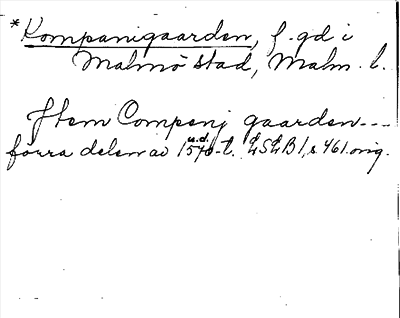 *Kompanigaarden, f. gd i
Malmö stad, Malm. l.
Item Compenj gaarden---
förra delen av 1570-t. LSLB 1, s. 461. orig.
u.d.